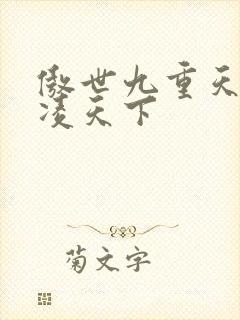 傲世九重天
凌天下
菊文字